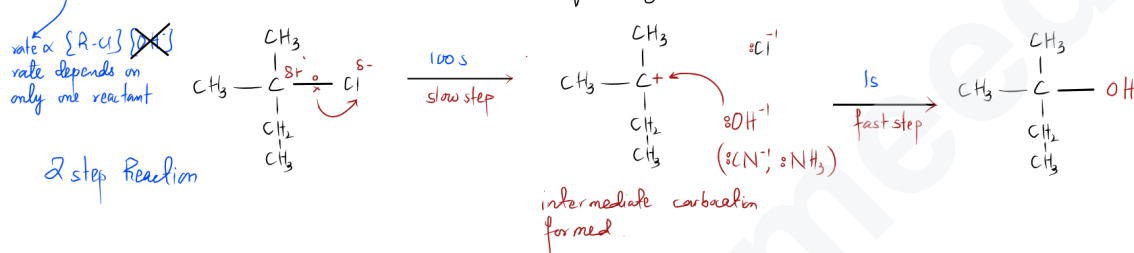 rate ∝ {R-Cl} {OH⁻}
rate depends on
only one reactant
2 step Reaction
CH₃
CH₃ — C — Cl
δ+
δ-
CH₂
CH₃
100s
slow step
CH₃
CH₃ — C+
CH₂
CH₃
:Cl⁻¹
:OH⁻¹
(:CN⁻¹, :NH₃)
intermediate carbocation
formed
1s
fast step
CH₃
CH₃ — C — OH
CH₂
CH₃